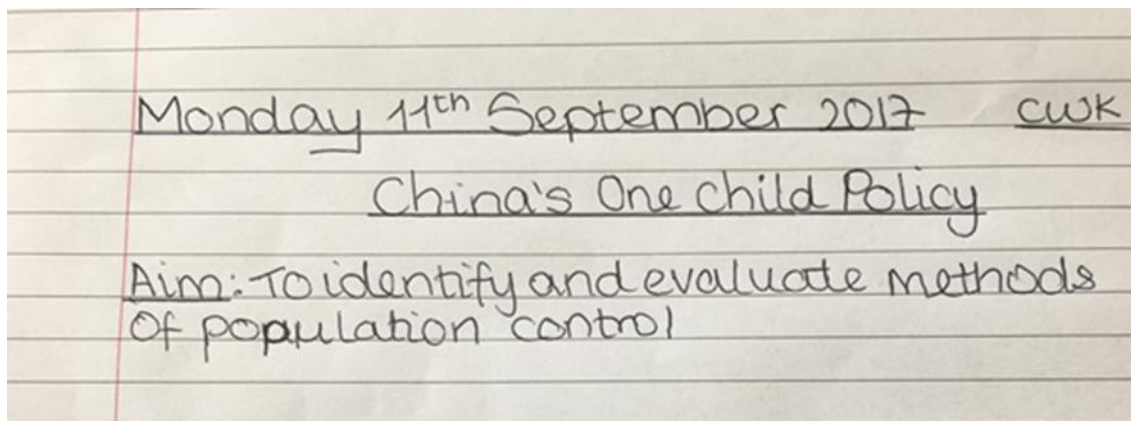 Monday 11th September 2017 CWK
China's One Child Policy
Aim: To identify and evaluate methods
Of population control